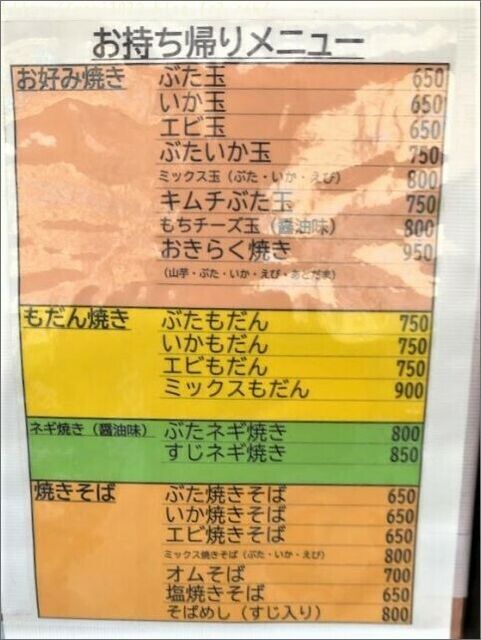 お持ち帰りメニュー
お好み焼き ぶた玉 650
いか玉 650
エビ玉 650
ぶたいか玉 750
ミックス玉（ぶた・いか・えび） 800
キムチぶた玉 750
もちチーズ玉（醤油味） 800
おきらく焼き 950
（山芋・ぶた・いか・えび・あとだま）
もだん焼き ぶたもだん 750
いかもだん 750
エビもだん 750
ミックスもだん 900
ネギ焼き（醤油味） ぶたネギ焼き 800
すじネギ焼き 850
焼きそば ぶた焼きそば 650
いか焼きそば 650
エビ焼きそば 650
ミックス焼きそば（ぶた・いか・えび） 800
オムそば 700
塩焼きそば 650
そばめし（すじ入り） 800